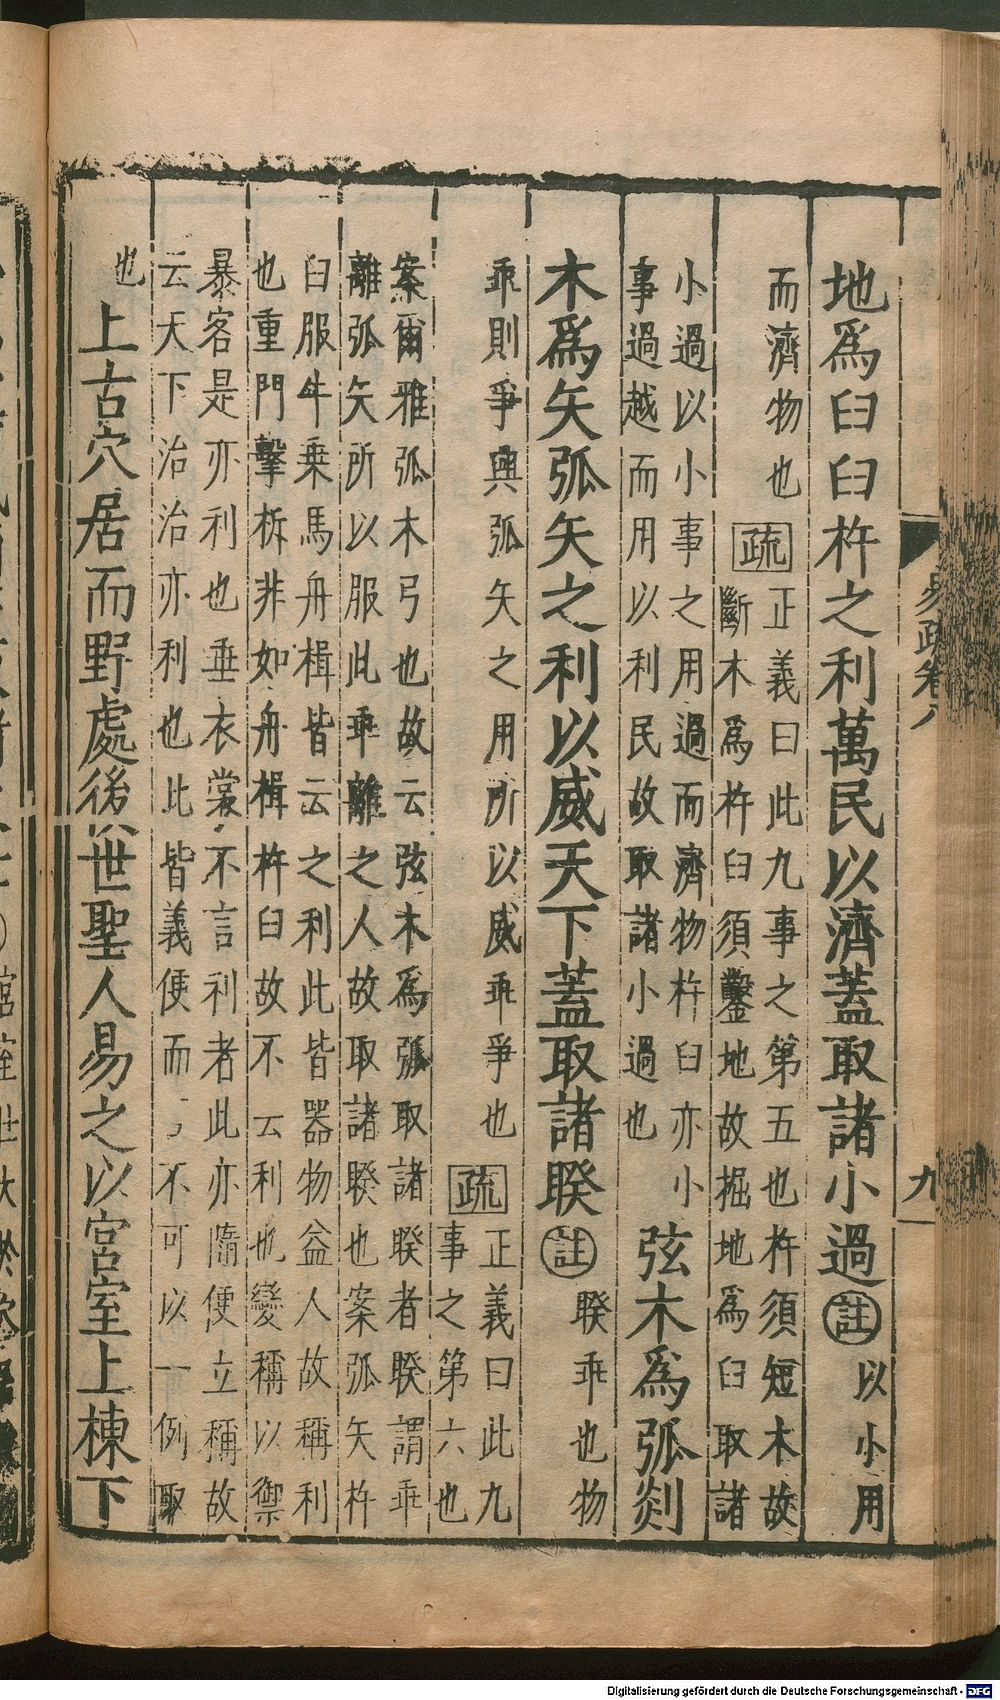 易疏卷八
九
地爲臼臼杵之利萬民以濟蓋取諸小過註以小用
而濟物也
疏
正義曰此九事之第五也杵須短木故
斷木爲杵臼須鑿地故掘地爲臼取諸
小過以小事之用過而濟物杵臼亦小
事過越而用以利民故取諸小過也
弦木爲弧剡
木爲矢弧矢之利以威天下蓋取諸睽註睽乖也物
乖則爭興弧矢之用所以威乖爭也
疏
正義曰此九
事之第六也
案爾雅弧木弓也故云弦木爲弧取諸睽者睽謂乖
離弧矢所以服此乖離之人故取諸睽也案弧矢杵
臼服牛乗馬舟楫皆云之利此皆器物益人故稱利
也重門擊柝非如舟楫杵臼故不云利也變稱以禦
暴客是亦利也垂衣裳不言利者此亦隨便立稱故
云天下治治亦利也此皆義便而不可以一例取
也上古穴居而野處後世聖人易之以宮室上棟下
Digitalisierung gefördert durch die Deutsche Forschungsgemeinschaft - DFG